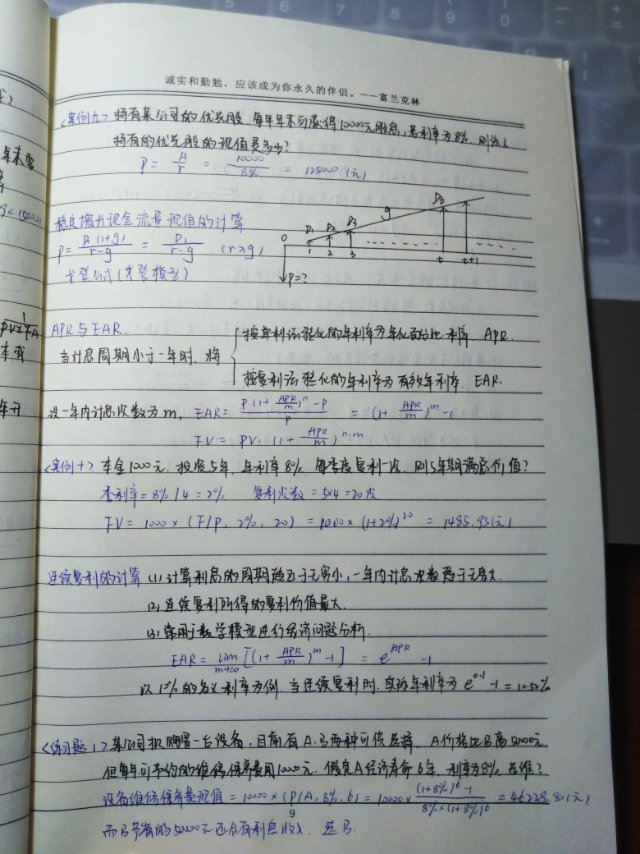 诚实和勤勉，应该成为你永久的伴侣。——富兰克林
<案例九> 持有某公司的优先股,每年年末可获得10000元股息,若利率为8%,则该人
持有的优先股的现值是多少?
P = A/r = 10000/8% = 125000 (元)
稳定增长现金流量现值的计算
P = A(1+g)/(r-g) = P1/(r-g) (r>g)
戈登公式(戈登模型)
0 1 2 3 t t+1
g
P=?
APR与EAR.
当计息周期小于一年时,将
按单利法转化的年利率为年化百分比利率 APR.
按复利法转化的年利率为有效年利率. EAR.
设一年内计息次数为m, EAR = (P(1+APR/m)^n - P)/P = (1+APR/m)^m - 1
FV = PV·(1+APR/m)^n·m
<案例十> 本金1000元,投资5年,年利率8%,每季度复利一次,则5年期满总价值?
季利率=8%/4=2% 复利次数=5×4=20次
FV = 1000×(F/P, 2%, 20) = 1000×(1+2%)^20 = 1485.95(元)
连续复利的计算 (1) 计算利息的周期趋近于无穷小,一年内计息次数趋于无穷大.
(2) 连续复利所得的复利价值最大.
(3) 常用于数学模型进行经济问题分析.
EAR = lim m→∞ [(1+APR/m)^m - 1] = e^APR - 1
以10%的名义利率为例,当连续复利时,实际年利率为 e^0.1 - 1 = 10.52%
<练习题1> 某公司拟购置一台设备,目前有A、B两种可供选择, A价格比B高50000元
但每年可节约的维修保养费用10000元. 假定A经济寿命6年,利率为8%,
设备维修保养费现值 = 10000×(P/A, 8%, 6) = 10000× ((1+8%)^6-1)/(8%×(1+8%)^6) = 46228.80(元)
而B节省的50000元还会有利息收入,选B.
9